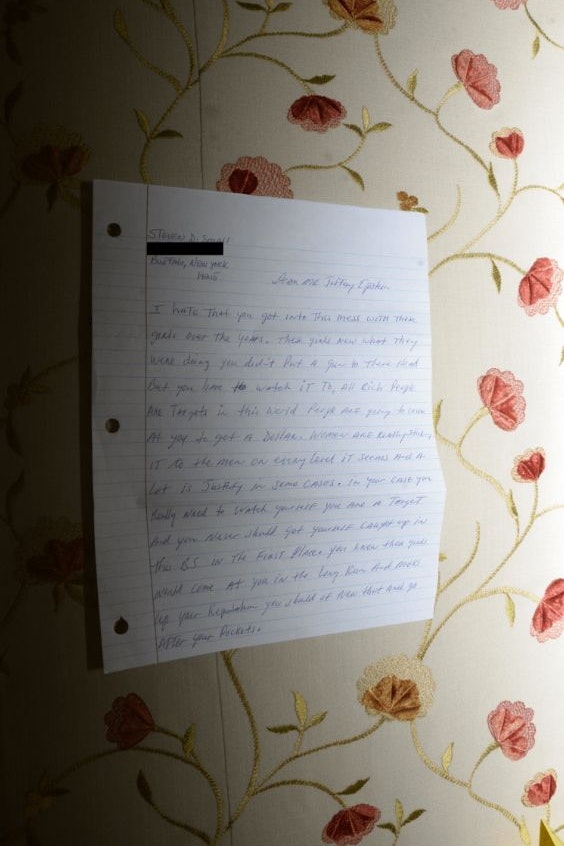 Steven D. Small
Buffalo, New York
Dear Mr. Jeffrey Epstein
I hate that you got into this mess with them
girls over the years. Them girls new what they
were doing you did't put a gun to there head
But you have to watch iT To, All Rich People
Are Targets in this World People Are going to come
At you to get a Dollar. Women Are Really Sticking
iT To the men on every level iT seems And A
Lot is Justify in some cases. In your case you
Really need to watch yourself you Are A Target
And you never should got yourself caught up in
this BS in the First Place. you knew them girls
would come At you in the long Run And mess
up your Reputation you should of New that And go
After your Pockets.